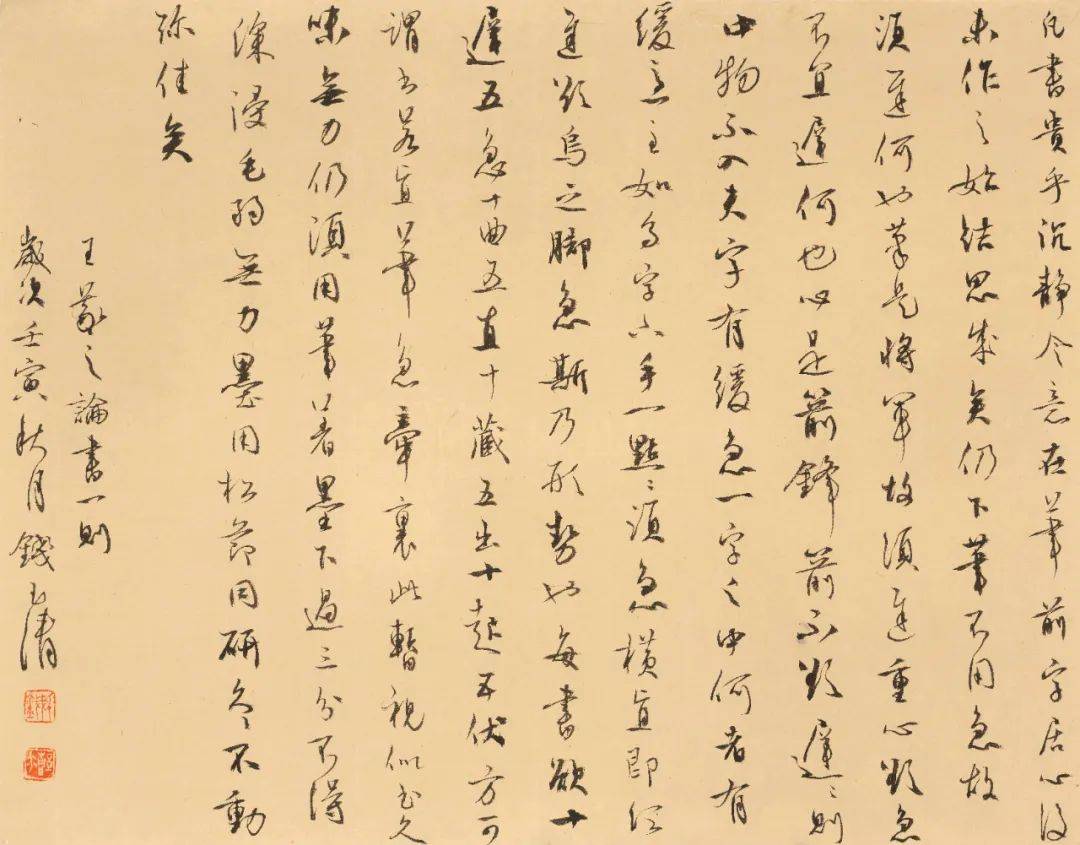 凡書貴乎沉靜令意在筆前字居心後
未作之始結思成矣仍下筆不用急故
須遲何也筆是將軍故須遲重心欲急
不宜遲何也心是箭鋒箭不欲遲〻則
中物不入夫字有緩急一字之中何者有
緩急至如烏字下手一點〻須急橫直即須
遲欲烏之腳急斯乃形勢也每書欲十
遲五急十曲五直十藏五出十起五伏方可
謂書若直筆急牽裹此暫視似書久
味無力仍須用筆著墨下過三分不得
深浸毛弱無力墨用松節同研久不動
弥佳矣
王羲之論書一則
歲次壬寅秋月錢玉清